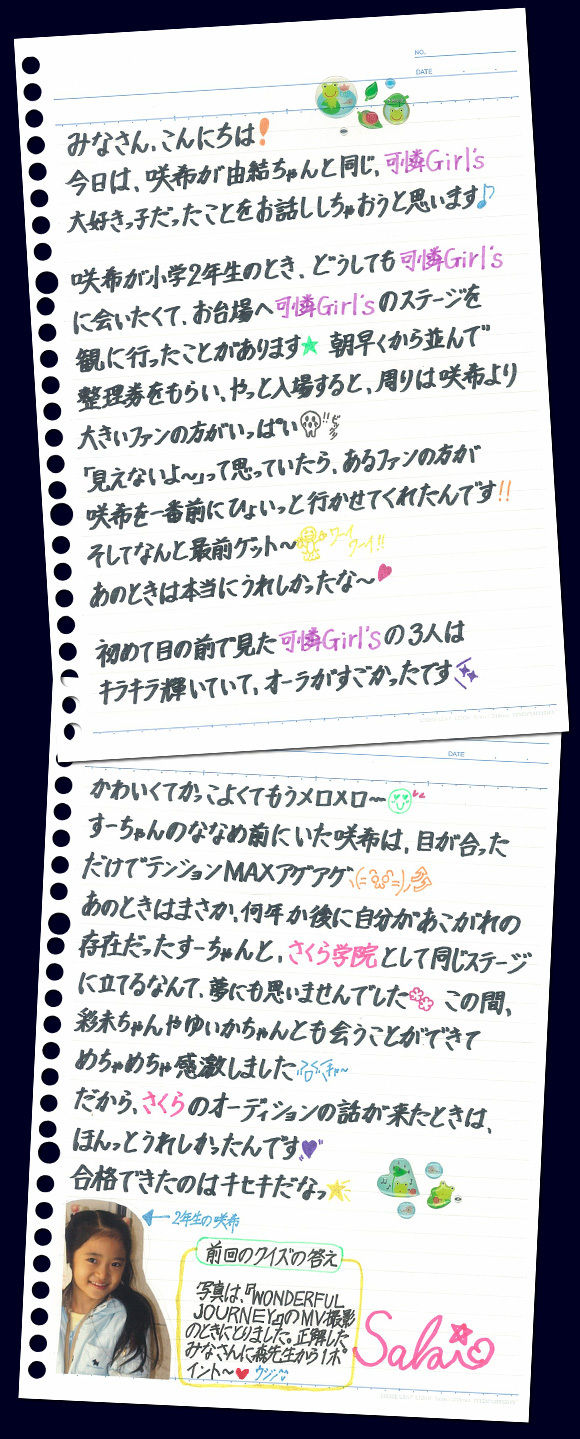 NO.
DATE
みなさん、こんにちは!
今日は、咲希が由結ちゃんと同じ、可憐Girl's
大好きっ子だったことをお話ししちゃおうと思います♪
咲希が小学2年生のとき、どうしても可憐Girl's
に会いたくて、お台場へ可憐Girl'sのステージを
観に行ったことがあります★ 朝早くから並んで
整理券をもらい、やっと入場すると、周りは咲希より
大きいファンの方がいっぱい!!
「見えないよ〜」って思っていたら、あるファンの方が
咲希を一番前にひょいっと行かせてくれたんです!!
そしてなんと最前ゲット〜ワーイワーイ!!
あのときは本当にうれしかったな〜♥
初めて目の前で見た可憐Girl'sの3人は
キラキラ輝いていて、オーラがすごかったです
DATE
かわいくてかっこよくてもうメロメロ〜
すーちゃんのななめ前にいた咲希は、目が合った
だけでテンションMAXアゲアゲ
あのときはまさか、何年か後に自分があこがれの
存在だったすーちゃんと、さくら学院として同じステージ
に立てるなんて、夢にも思いませんでした この間、
彩未ちゃんやゆいかちゃんとも会うことができて
めちゃめちゃ感激しました
だから、さくらのオーディションの話が来たときは、
ほんっとうれしかったんです♥
合格できたのはキセキだなっ
←2年生の咲希
前回のクイズの答え
写真は、『WONDERFUL
JOURNEY』のMV撮影
のときにとりました。正解した
みなさんに森先生から1ポ
イント〜♥ウシシ
Saki